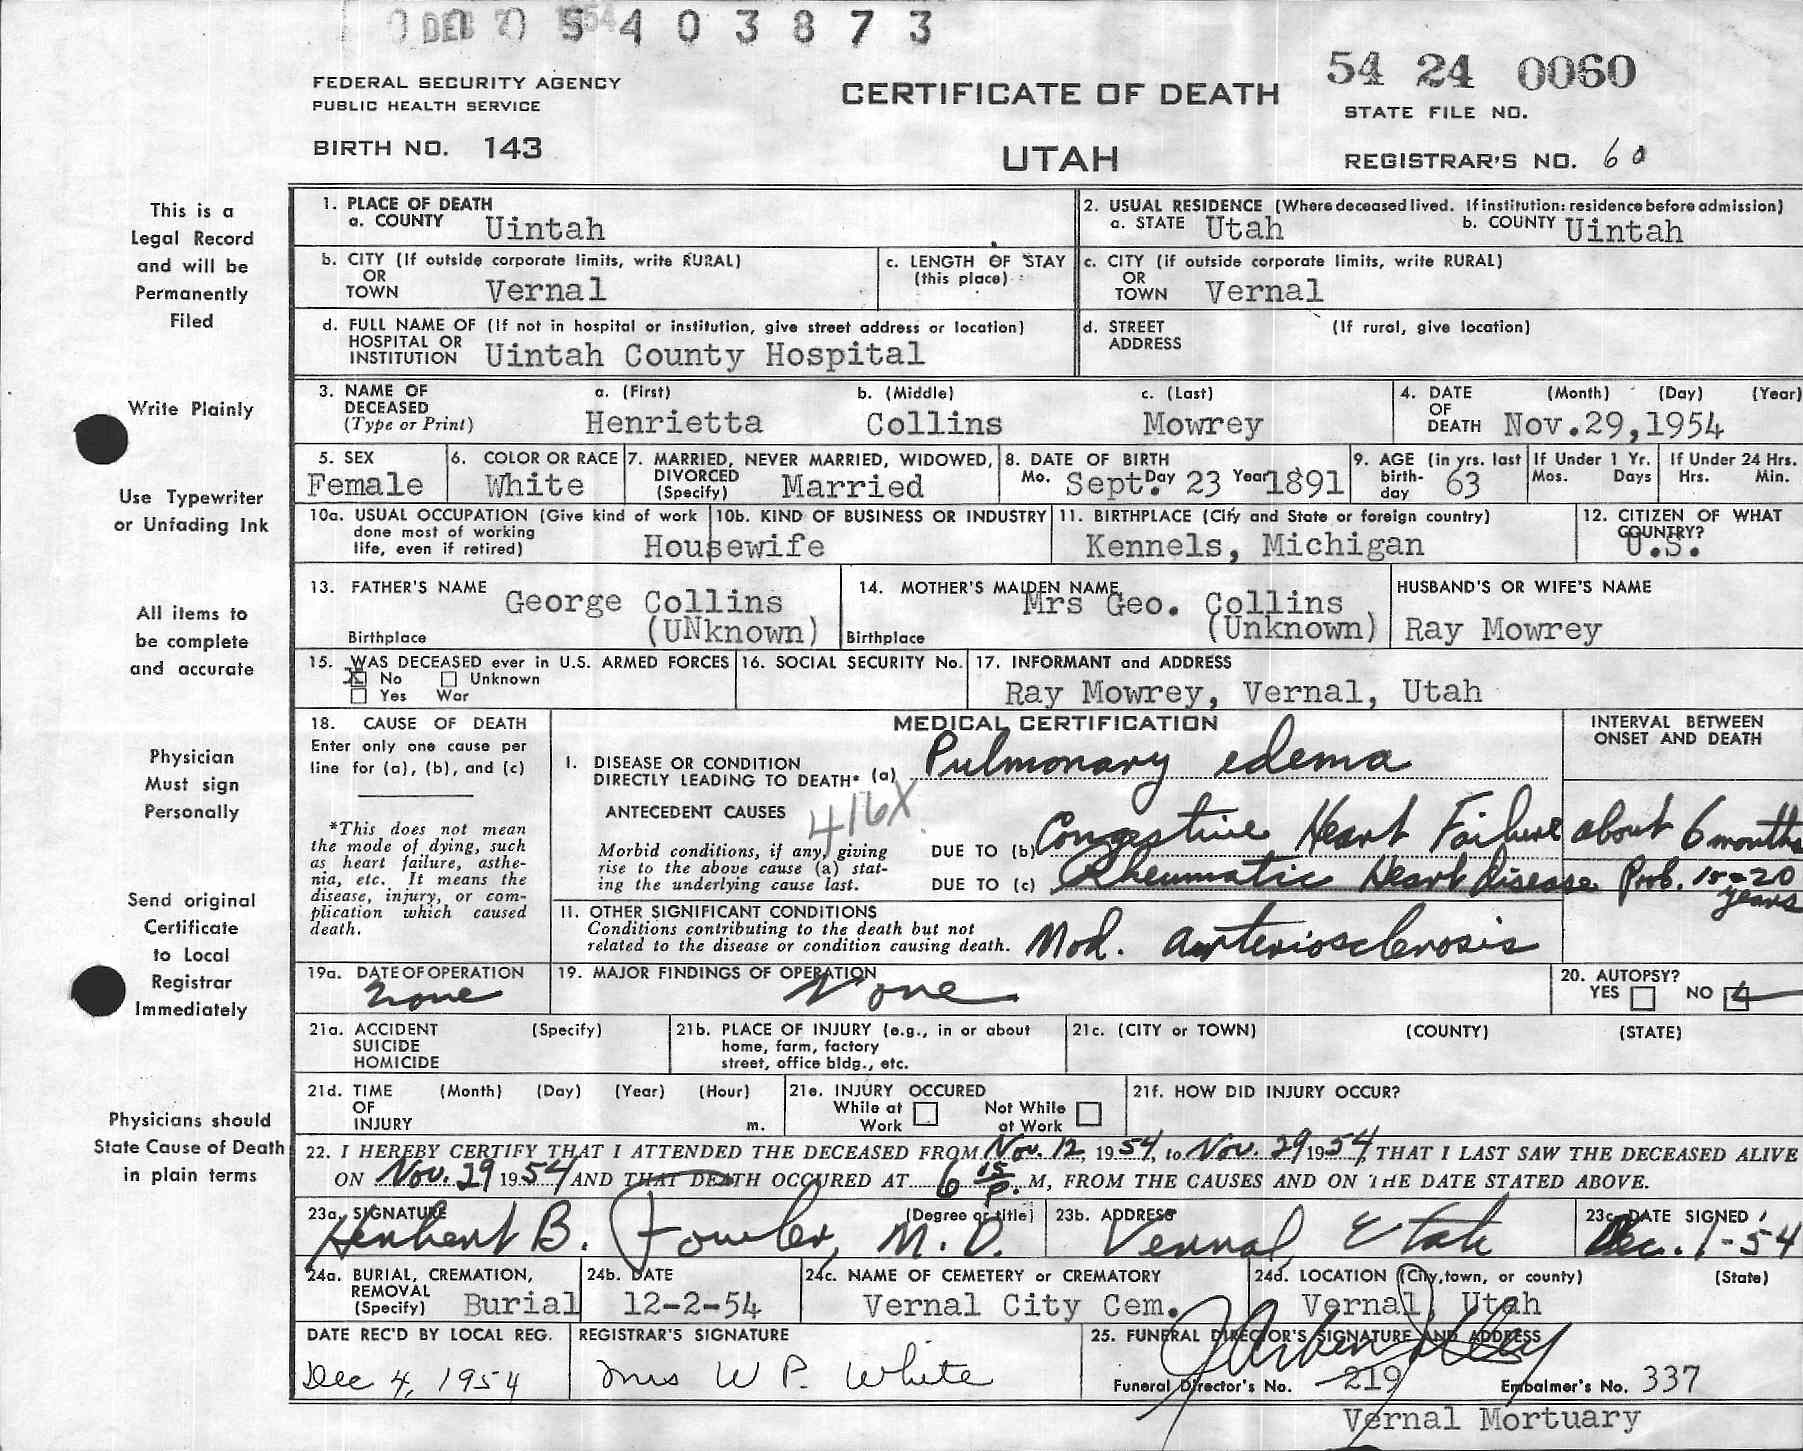 0 DEC 7 0 5 1954 4 0 3 8 7 3
54 24 0060
FEDERAL SECURITY AGENCY
PUBLIC HEALTH SERVICE
CERTIFICATE OF DEATH
STATE FILE NO.
BIRTH NO. 143
UTAH
REGISTRAR'S NO. 60
This is a
Legal Record
and will be
Permanently
Filed
Write Plainly
Use Typewriter
or Unfading Ink
All items to
be complete
and accurate
Physician
Must sign
Personally
Send original
Certificate
to Local
Registrar
Immediately
Physicians should
State Cause of Death
in plain terms
1. PLACE OF DEATH
a. COUNTY Uintah
2. USUAL RESIDENCE (Where deceased lived. If institution: residence before admission)
a. STATE Utah b. COUNTY Uintah
b. CITY (If outside corporate limits, write RURAL)
OR
TOWN Vernal
c. LENGTH OF STAY
(this place)
c. CITY (if outside corporate limits, write RURAL)
OR
TOWN Vernal
d. FULL NAME OF (If not in hospital or institution, give street address or location)
HOSPITAL OR
INSTITUTION Uintah County Hospital
d. STREET (If rural, give location)
ADDRESS
3. NAME OF
DECEASED
(Type or Print)
a. (First) b. (Middle) c. (Last)
Henrietta Collins Mowrey
4. DATE (Month) (Day) (Year)
OF
DEATH Nov.29,1954
5. SEX
Female
6. COLOR OR RACE
White
7. MARRIED, NEVER MARRIED, WIDOWED,
DIVORCED
(Specify) Married
8. DATE OF BIRTH
Mo. Sept. Day 23 Year 1891
9. AGE (in yrs. last
birth-
day 63
If Under 1 Yr.
Mos. Days
If Under 24 Hrs.
Hrs. Min.
10a. USUAL OCCUPATION (Give kind of work
done most of working
life, even if retired)
10b. KIND OF BUSINESS OR INDUSTRY
Housewife
11. BIRTHPLACE (City and State or foreign country)
Kennels, Michigan
12. CITIZEN OF WHAT
COUNTRY?
U.S.
13. FATHER'S NAME George Collins
Birthplace (UNknown)
14. MOTHER'S MAIDEN NAME
Mrs Geo. Collins
Birthplace (Unknown)
HUSBAND'S OR WIFE'S NAME
Ray Mowrey
15. WAS DECEASED ever in U.S. ARMED FORCES
X No Unknown
Yes War
16. SOCIAL SECURITY No.
17. INFORMANT and ADDRESS
Ray Mowrey, Vernal, Utah
18. CAUSE OF DEATH
Enter only one cause per
line for (a), (b), and (c)
*This does not mean
the mode of dying, such
as heart failure, asthe-
nia, etc. It means the
disease, injury, or com-
plication which caused
death.
MEDICAL CERTIFICATION
INTERVAL BETWEEN
ONSET AND DEATH
I. DISEASE OR CONDITION
DIRECTLY LEADING TO DEATH* (a) Pulmonary edema
ANTECEDENT CAUSES 416X
Morbid conditions, if any, giving
rise to the above cause (a) stat-
ing the underlying cause last.
DUE TO (b) Congestive Heart Failure about 6 months
DUE TO (c) Rheumatic Heart Disease Prob. 15-20
years
II. OTHER SIGNIFICANT CONDITIONS
Conditions contributing to the death but not
related to the disease or condition causing death. Mod. arteriosclerosis
19a. DATE OF OPERATION
None
19. MAJOR FINDINGS OF OPERATION
None
20. AUTOPSY?
YES NO
21a. ACCIDENT (Specify)
SUICIDE
HOMICIDE
21b. PLACE OF INJURY (e.g., in or about
home, farm, factory
street, office bldg., etc.
21c. (CITY or TOWN) (COUNTY) (STATE)
21d. TIME (Month) (Day) (Year) (Hour)
OF
INJURY m.
21e. INJURY OCCURED
While at Work Not While at Work
21f. HOW DID INJURY OCCUR?
22. I HEREBY CERTIFY THAT I ATTENDED THE DECEASED FROM Nov. 12, 1954, to Nov. 29 1954, THAT I LAST SAW THE DECEASED ALIVE
ON Nov. 29 1954 AND THAT DEATH OCCURED AT 6 15 P. M, FROM THE CAUSES AND ON THE DATE STATED ABOVE.
23a. SIGNATURE (Degree or title)
Herbert B. Fowler, M.D.
23b. ADDRESS
Vernal Utah
23c. DATE SIGNED
Dec. 1-54
24a. BURIAL, CREMATION,
REMOVAL
(Specify) Burial
24b. DATE
12-2-54
24c. NAME OF CEMETERY or CREMATORY
Vernal City Cem.
24d. LOCATION (City, town, or county) (State)
Vernal, Utah
DATE REC'D BY LOCAL REG.
Dec 4, 1954
REGISTRAR'S SIGNATURE
Mrs W P. White
25. FUNERAL DIRECTOR'S SIGNATURE AND ADDRESS
Funeral Director's No. 219 Embalmer's No. 337
Vernal Mortuary